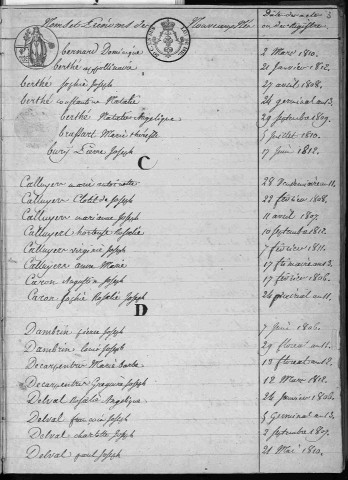 Noms et Prénoms des Nouveaux Nés Date des actes ou des Registres
bernard Dominique 2 Mars 1810.
berthé appollinaire 21 Janvier 1812.
berthé Sophie Joseph 27 avril 1808.
berthé Constance Natalie 26 germinal an
berthé Natalie Angelique 29 Septembre 1809.
brassart Marie 5 juillet 1810.
Pierre Joseph 17 Juin 1812.
C
Calluyer marie antoinette 28 Vendemiaire 11.
Calluyer Clotilde Joseph 22 fevrier 1808.
Calluyer marianne Joseph 11 avril 1807.
Calluyer hortense Rosalie 10 Septembre 1812.
Calluyer virginie Joseph 7 fevrier 1811.
Calluyer anne Marie 17 frimaire an
Caron Augustin Joseph 17 fevrier 1806.
Caron Sophie Rosalie Joseph 26 prairial an 11.
D
Dambrin pierre Joseph 7 Juin 1806.
Dambrin Louis Joseph 29 floreal an 11.
Decarpentier Marie barbe 13 floreal an 12.
Decarpentier Gregoire Joseph 12 Mars 1812.
Delval Rosalie Angelique 26 Janvier 1806.
Delval françois Joseph 5 Germinal an
Delval charlotte Joseph 2 Septembre 1807.
Delval paul Joseph 21 Mai 1810.